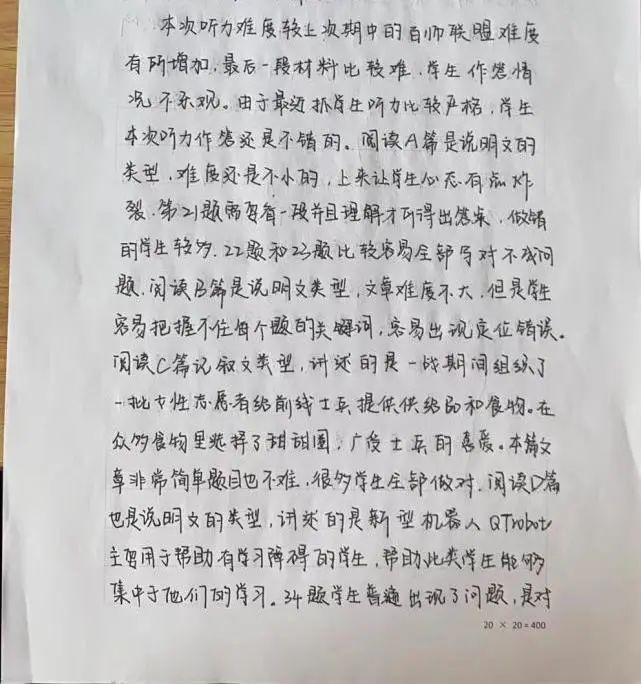 本次听力难度较上次期中的百师联盟难度
有所增加,最后一段材料比较难,学生作答情
况不乐观。由于最近抓学生听力比较严格,学生
本次听力作答还是不错的。阅读A篇是说明文的
类型,难度还是不小的,上来让学生心态有点炸
裂.第21题需要看一段并且理解才能得出答案,做错
的学生较多.22题和23题比较容易全部写对不成问
题.阅读B篇是说明文类型,文章难度不大,但是学生
容易把握不住每个题的关键词,容易出现定位错误。
阅读C篇记叙文类型,讲述的是一战期间组织了
一批女性志愿者给前线士兵提供供给品和食物。在
众多食物里选择了甜甜圈,广受士兵的喜爱。本篇文
章非常简单题目也不难,很多学生全部做对.阅读D篇
也是说明文的类型,讲述的是新型机器人QTrobot
主要用于帮助有学习障碍的学生,帮助此类学生能够
集中于他们的学习。34题学生普遍出现了问题,是对
20 × 20 = 400